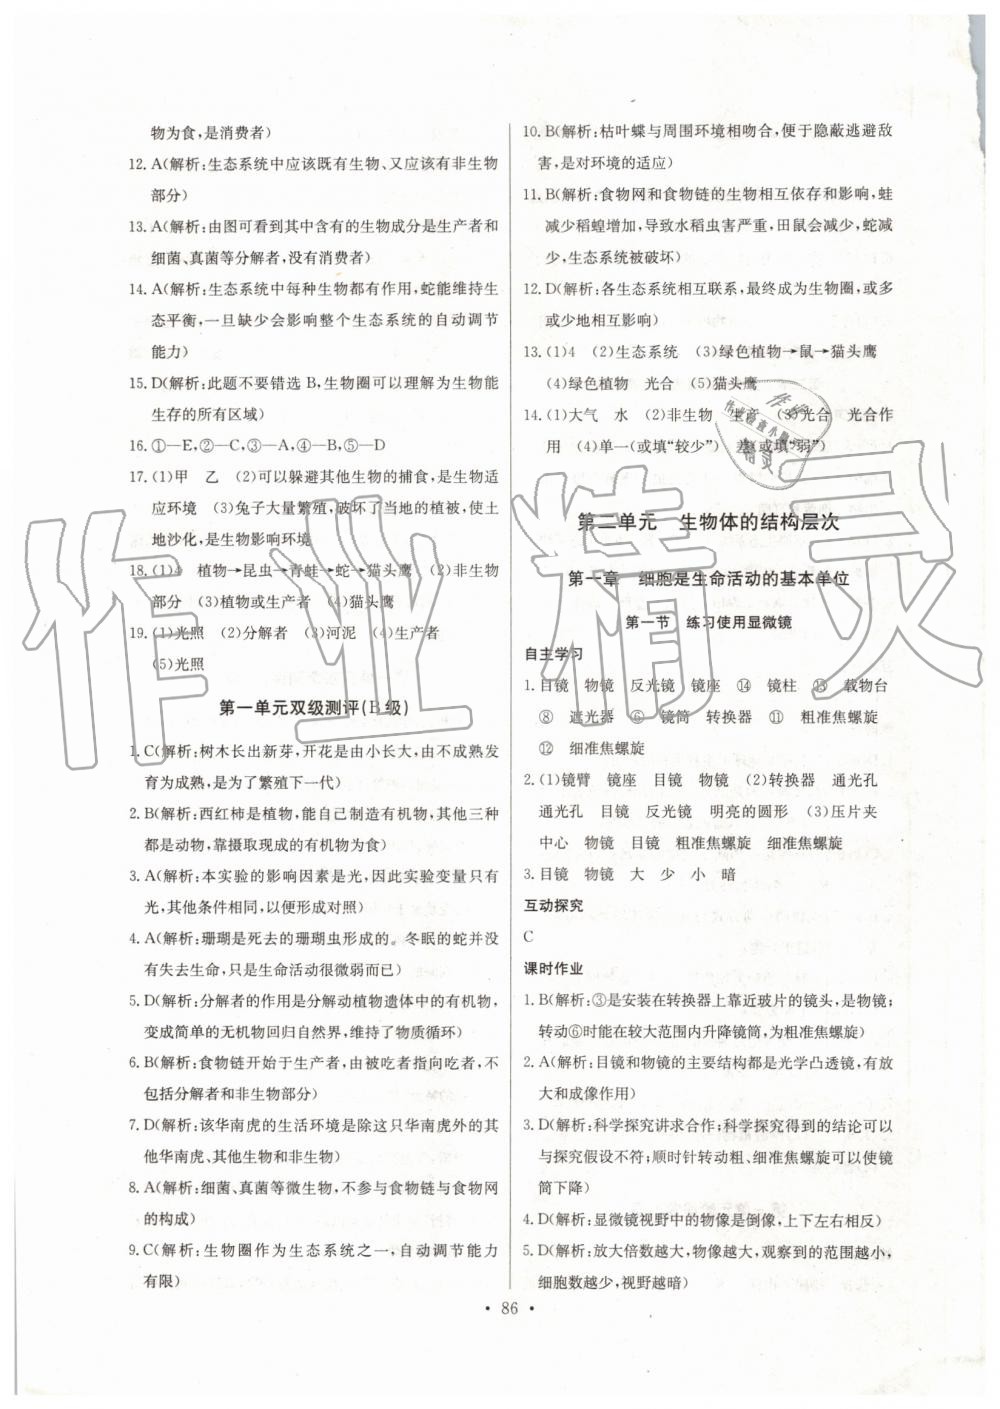 物为食,是消费者)
12. A(解析:生态系统中应该既有生物、又应该有非生物
部分)
13. A(解析:由图可看到其中含有的生物成分是生产者和
细菌、真菌等分解者,没有消费者)
14. A(解析:生态系统中每种生物都有作用,蛇能维持生
态平衡,一旦缺少会影响整个生态系统的自动调节
能力)
15. D(解析:此题不要错选 B,生物圈可以理解为生物能
生存的所有区域)
16. ①—E,②—C,③—A,④—B,⑤—D
17. (1)甲 乙 (2)可以躲避其他生物的捕食,是生物适
应环境 (3)兔子大量繁殖,破坏了当地的植被,使土
地沙化,是生物影响环境
18. (1)4 植物→昆虫→青蛙→蛇→猫头鹰 (2)非生物
部分 (3)植物或生产者 (4)猫头鹰
19. (1)光照 (2)分解者 (3)河泥 (4)生产者
(5)光照
第一单元双级测评(B级)
1. C(解析:树木长出新芽,开花是由小长大,由不成熟发
育为成熟,是为了繁殖下一代)
2. B(解析:西红柿是植物,能自己制造有机物,其他三种
都是动物,靠摄取现成的有机物为食)
3. A(解析:本实验的影响因素是光,因此实验变量只有
光,其他条件相同,以便形成对照)
4. A(解析:珊瑚是死去的珊瑚虫形成的。冬眠的蛇并没
有失去生命,只是生命活动很微弱而已)
5. D(解析:分解者的作用是分解动植物遗体中的有机物,
变成简单的无机物回归自然界,维持了物质循环)
6. B(解析:食物链开始于生产者,由被吃者指向吃者,不
包括分解者和非生物部分)
7. D(解析:该华南虎的生活环境是除这只华南虎外的其
他华南虎、其他生物和非生物)
8. A(解析:细菌、真菌等微生物,不参与食物链与食物网
的构成)
9. C(解析:生物圈作为生态系统之一,自动调节能力
有限)
10. B(解析:枯叶蝶与周围环境相吻合,便于隐蔽逃避敌
害,是对环境的适应)
11. B(解析:食物网和食物链的生物相互依存和影响,蛙
减少稻蝗增加,导致水稻虫害严重,田鼠会减少,蛇减
少,生态系统被破坏)
12. D(解析:各生态系统相互联系,最终成为生物圈,或多
或少地相互影响)
13. (1)4 (2)生态系统 (3)绿色植物→鼠→猫头鹰
(4)绿色植物 光合 (5)猫头鹰
14. (1)大气 水 (2)非生物 生产 (3)光合 光合作
用 (4)单一(或填“较少”) 差(或填“弱”)
第二单元 生物体的结构层次
第一章 细胞是生命活动的基本单位
第一节 练习使用显微镜
自主学习
1. 目镜 物镜 反光镜 镜座 ⑭ 镜柱 ⑬ 载物台
⑧ 遮光器 ⑥ 镜筒 转换器 ⑪ 粗准焦螺旋
⑫ 细准焦螺旋
2. (1)镜臂 镜座 目镜 物镜 (2)转换器 通光孔
通光孔 目镜 反光镜 明亮的圆形 (3)压片夹
中心 物镜 目镜 粗准焦螺旋 细准焦螺旋
3. 目镜 物镜 大 少 小 暗
互动探究
C
课时作业
1. B(解析:③是安装在转换器上靠近玻片的镜头,是物镜;
转动⑥时能在较大范围内升降镜筒,为粗准焦螺旋)
2. A(解析:目镜和物镜的主要结构都是光学凸透镜,有放
大和成像作用)
3. D(解析:科学探究讲求合作;科学探究得到的结论可以
与探究假设不符;顺时针转动粗、细准焦螺旋可以使镜
筒下降)
4. D(解析:显微镜视野中的物像是倒像,上下左右相反)
5. D(解析:放大倍数越大,物像越大,观察到的范围越小,
细胞数越少,视野越暗)
• 86 •
作业精灵